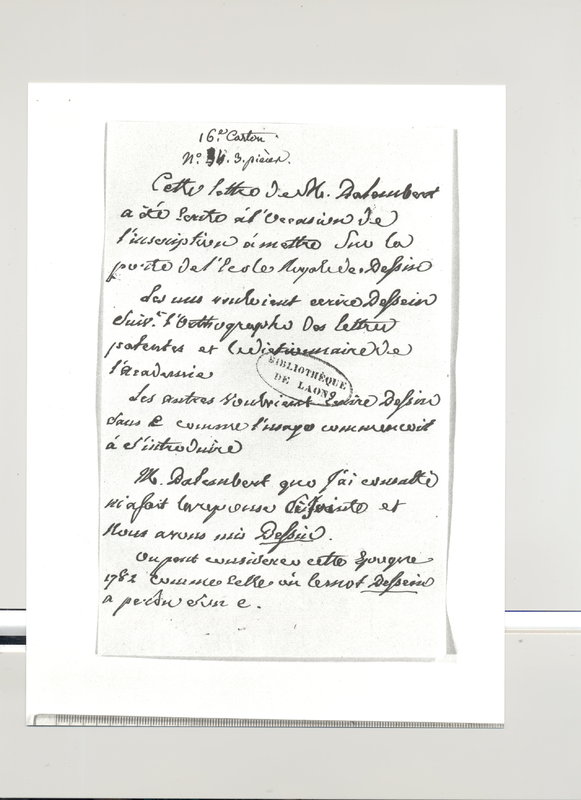 16.e Carton
N.o 34. 3. pièces.
Cette lettre de M. Dalembert
a été Ecrite à l'occasion de
l'inscription à mettre Sur la
porte de l'Ecole Royale de Dessin
Les uns vouloient ecrire Dessein
suiv.t l'orthographe des lettres
patentes et le dictionnaire de
l'academie
BIBLIOTHÈQUE
DE LAON
Les autres vouloient Ecrire Dessin
sans E comme l'usage commencoit
à s'introduire
M. Dalembert que j'ai consulté
m'a fait la reponse Cy Jointe et
Nous avons mis Dessin.
On peut considerer cette Epoque
1782 comme Celle où le mot Dessein
a perdu son e.